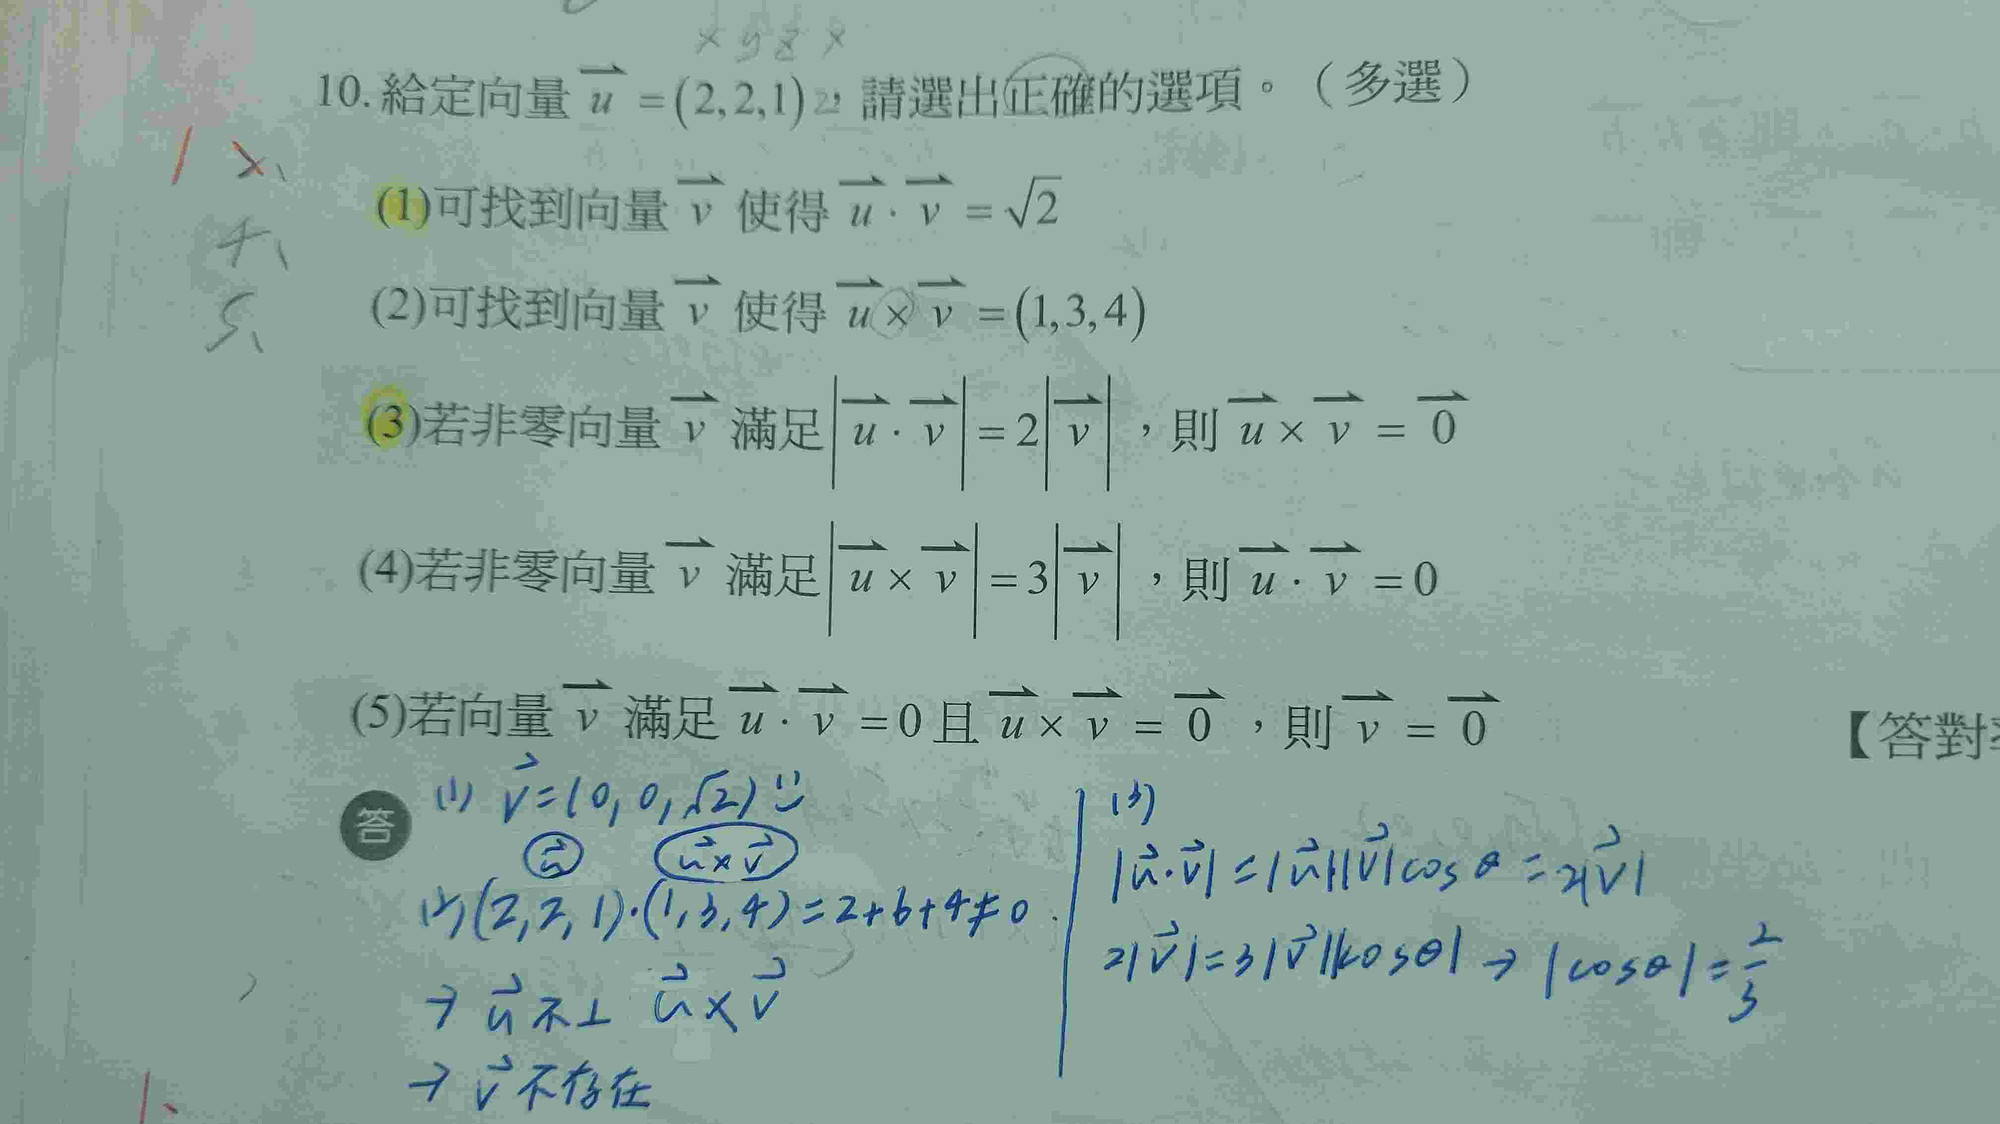 x y z x
10. 給定向量 u⃗ = (2,2,1) 2，請選出正確的選項。（多選）
1、
4、
5、
(1)可找到向量 v⃗ 使得 u⃗ · v⃗ = √2
(2)可找到向量 v⃗ 使得 u⃗ × v⃗ = (1,3,4)
(3)若非零向量 v⃗ 滿足 |u⃗ · v⃗| = 2|v⃗|，則 u⃗ × v⃗ = 0⃗
(4)若非零向量 v⃗ 滿足 |u⃗ × v⃗| = 3|v⃗|，則 u⃗ · v⃗ = 0
(5)若向量 v⃗ 滿足 u⃗ · v⃗ = 0 且 u⃗ × v⃗ = 0⃗，則 v⃗ = 0⃗
【答對
答
(1) v⃗ = (0, 0, √2)
u⃗ u⃗ × v⃗
(2) (2, 2, 1)·(1, 3, 4) = 2+6+4 ≠ 0
→ u⃗ 不⊥ u⃗ × v⃗
→ v⃗ 不存在
(3)
|u⃗·v⃗| = |u⃗||v⃗|cosθ = 2|v⃗|
2|v⃗| = 3|v⃗||cosθ| → |cosθ| = 2/3